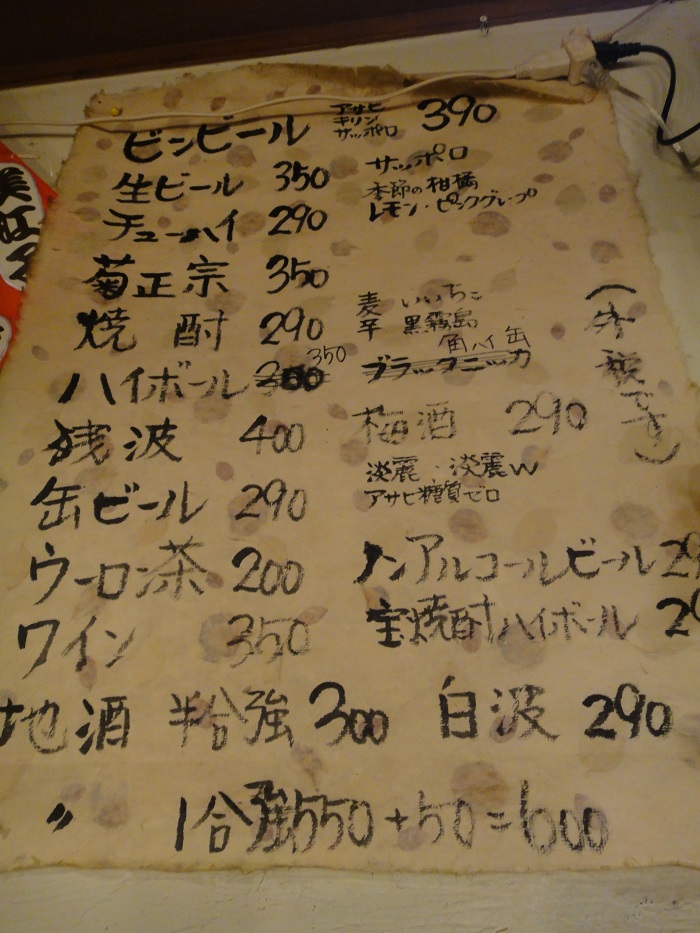 アサヒ
キリン
サッポロ
ビンビール 390
生ビール 350 サッポロ
季節の柑橘
チューハイ 290 レモン・ピンクグレープ
菊正宗 350
焼酎 290 麦 いいちこ
芋 黒霧島
角ハイ缶
ハイボール 350 ブラックニッカ
(外税です)
残波 400 梅酒 290
缶ビール 290 淡麗・淡麗W
アサヒ糖質ゼロ
ウーロン茶 200 ノンアルコールビール 29
ワイン 350 宝焼酎ハイボール 29
地酒 半合強 300 白波 290
〃 1合強 550+50=600